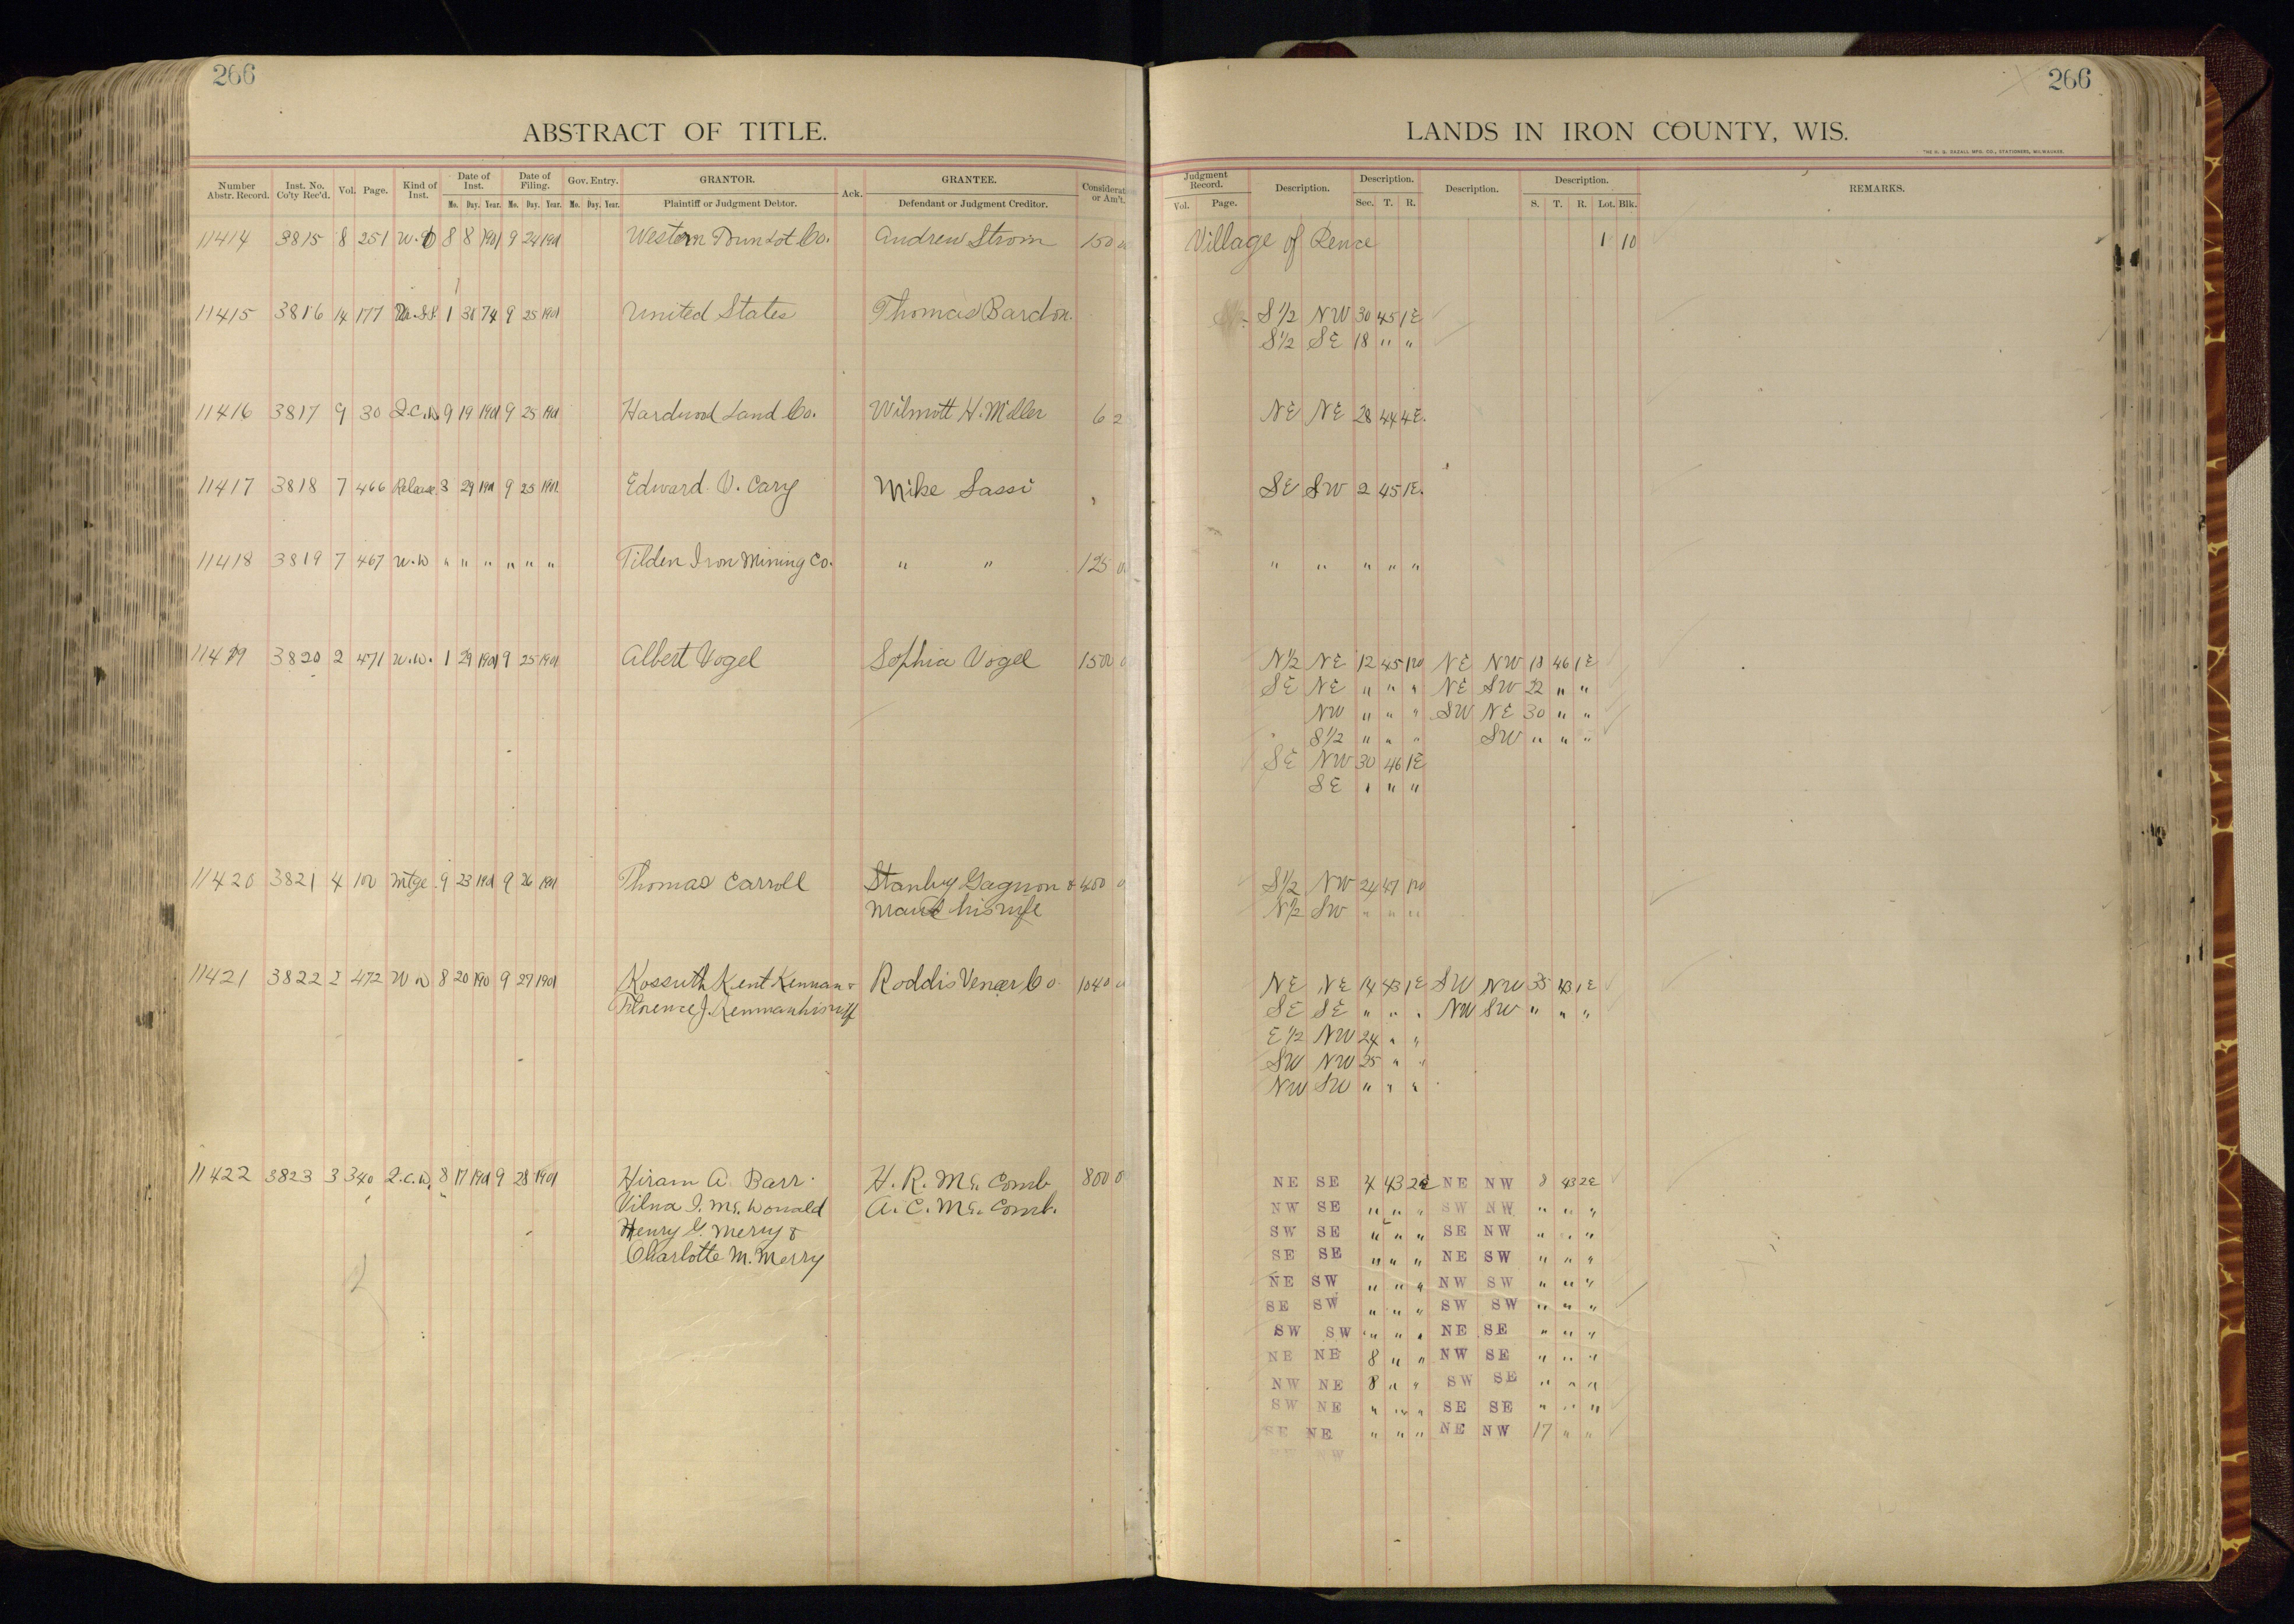 266
ABSTRACT OF TITLE.
Number Abstr. Record. Inst. No. Co'ty Rec'd. Vol. Page. Kind of Inst. Date of Inst. Mo. Day. Year. Date of Filing. Mo. Day. Year. Gov. Entry. Mo. Day. Year. GRANTOR. Plaintiff or Judgment Debtor. Ack. GRANTEE. Defendant or Judgment Creditor. Considerat or Am't.
11414 3815 8 251 W.D 8 8 1901 9 24 1901 Western Co. Andrew Strom 150
11415 3816 14 177 1 31 74 9 25 1901 United States Thomas Bardon.
11416 3817 9 30 Q.C.D 9 19 1901 9 25 1901 Hardwood Land Co. Wilmott H. Miller 6 2
11417 3818 7 466 Release 3 29 1901 9 25 1901 Edward V. Cary Mike Sassi
11418 3819 7 467 W.D " " " " " " Tilden Iron Mining Co. " " 125
11419 3820 2 471 W.D. 1 29 1901 9 25 1901 Albert Vogel Sophia Vogel 1500
11420 3821 4 100 Mtge 9 23 1901 9 26 1901 Thomas Carroll Stanley Gagnon & 400
Maud his wife
11421 3822 2 472 W D 8 20 190 9 27 1901 Kossuth Kent Kennan & Roddis Veneer Co 1040
Florence J. Kennan his wiff
11422 3823 3 340 Q.C.D. 8 17 1901 9 28 1901 Hiram A. Barr. H. R. Mc. Comb 800
Vilna I. Mc. Donald A. C. Mc. Comb.
Henry G. Merry &
Charlotte M. Merry
266
LANDS IN IRON COUNTY, WIS.
Judgment Record. Vol. Page. Description. Description. Sec. T. R. Description. Description. S. T. R. Lot. Blk. REMARKS.
Village of Pence 1 10
S 1/2 NW 30 45 1E
S 1/2 SE 18 " "
NE NE 28 44 4E.
SE SW 2 45 1E.
" " " " "
N 1/2 NE 12 45 1W NE NW 18 46 1E
SE NE " " " NE SW 22 " "
NW " " " SW NE 30 " "
S 1/2 " " " SW " " "
SE NW 30 46 1E
SE " " "
S 1/2 NW 24 47 1W
N 1/2 SW " " "
NE NE 14 43 1E SW NW 35 43 1E
SE SE " " " NW SW " " "
E 1/2 NW 24 " "
SW NW 25 " "
NW SW " " "
NE SE 4 43 2E NE NW 8 43 2E
NW SE " " " SW NW " " "
SW SE " " " SE NW " " "
SE SE " " " NE SW " " "
NE SW " " " NW SW " " "
SE SW " " " SW SW " " "
SW SW " " " NE SE " " "
NE NE 8 " " NW SE " " "
NW NE 8 " " SW SE " " "
SW NE " " " SE SE " " "
SE NE " " " NE NW 17 " "
NW